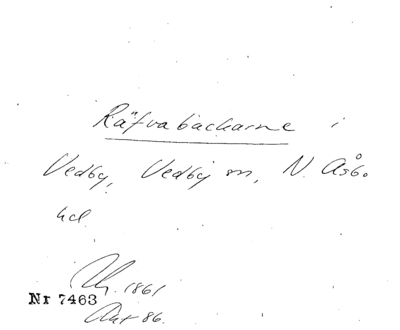 Räfvabackarne i
Vedby, Vedby sn, N. Åsb.
hd.
1861
Nr 7463
Akt 86.